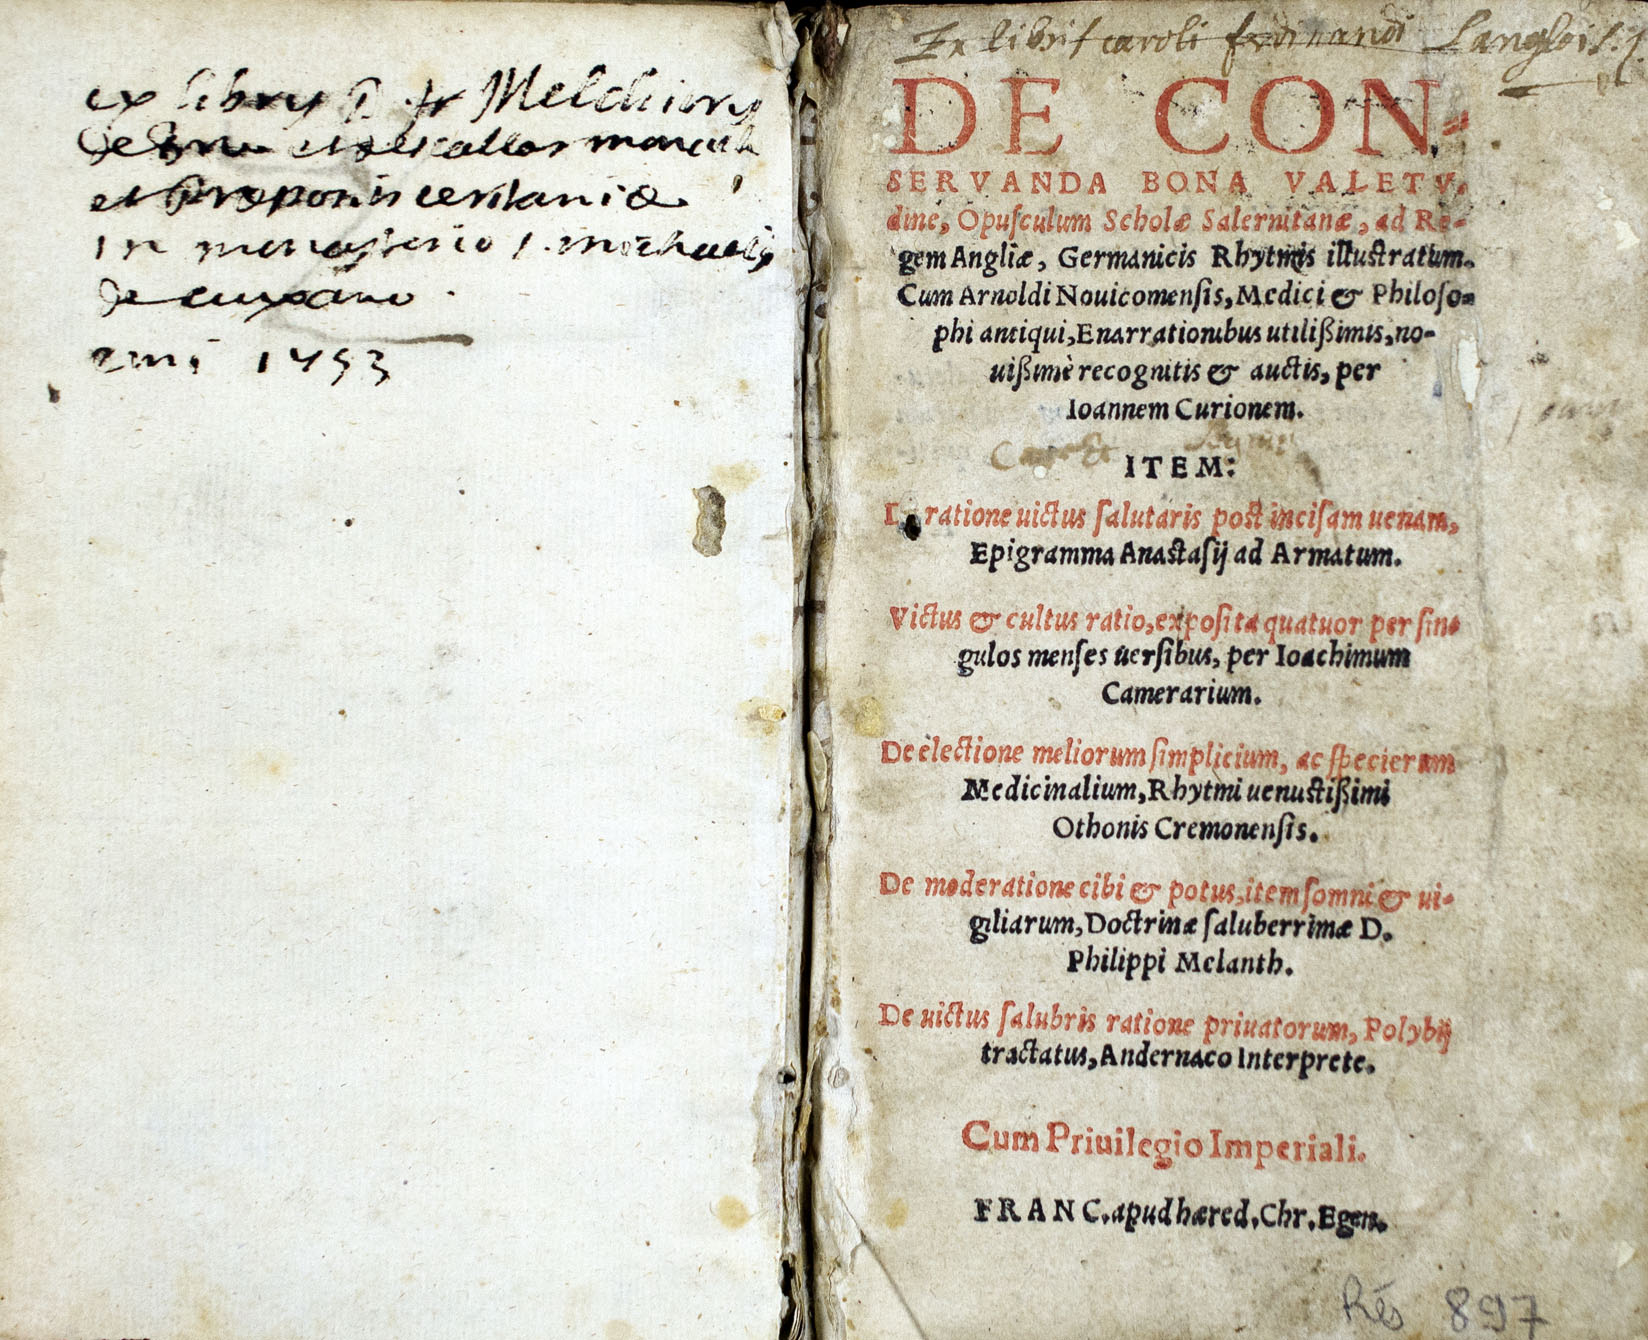 ex libris fr Melchioris
de et de
et prepositi ceritaniæ
in monasterio s. michaelis
de cuxano
anni 1753
Ex libris caroli ferdinandi Langlois.
DE CON-
SERVANDA BONA VALETV-
dine, Opuſculum Scholæ Salernitanæ, ad Re-
gem Angliæ, Germanicis Rhytmis illuſtratum.
Cum Arnoldi Nouicomenſis, Medici & Philoſo-
phi antiqui, Enarrationibus utilißimis, no-
uißimè recognitis & auctis, per
Ioannem Curionem.
ITEM:
ratione uictus ſalutaris poſt inciſam uenam,
Epigramma Anaſtaſij ad Armatum.
Victus & cultus ratio, expoſita quatuor per ſin-
gulos menſes uerſibus, per Ioachimum
Camerarium.
De electione meliorum ſimplicium, ac ſpecierum
Medicinalium, Rhytmi uenuſtißimi
Othonis Cremonenſis.
De moderatione cibi & potus, item ſomni & ui-
giliarum, Doctrinæ ſaluberrimæ D.
Philippi Melanth.
De uictus ſalubris ratione priuatorum, Polybij
tractatus, Andernaco Interprete.
Cum Priuilegio Imperiali.
FRANC. apud hæred. Chr. Egen.
Rés 897